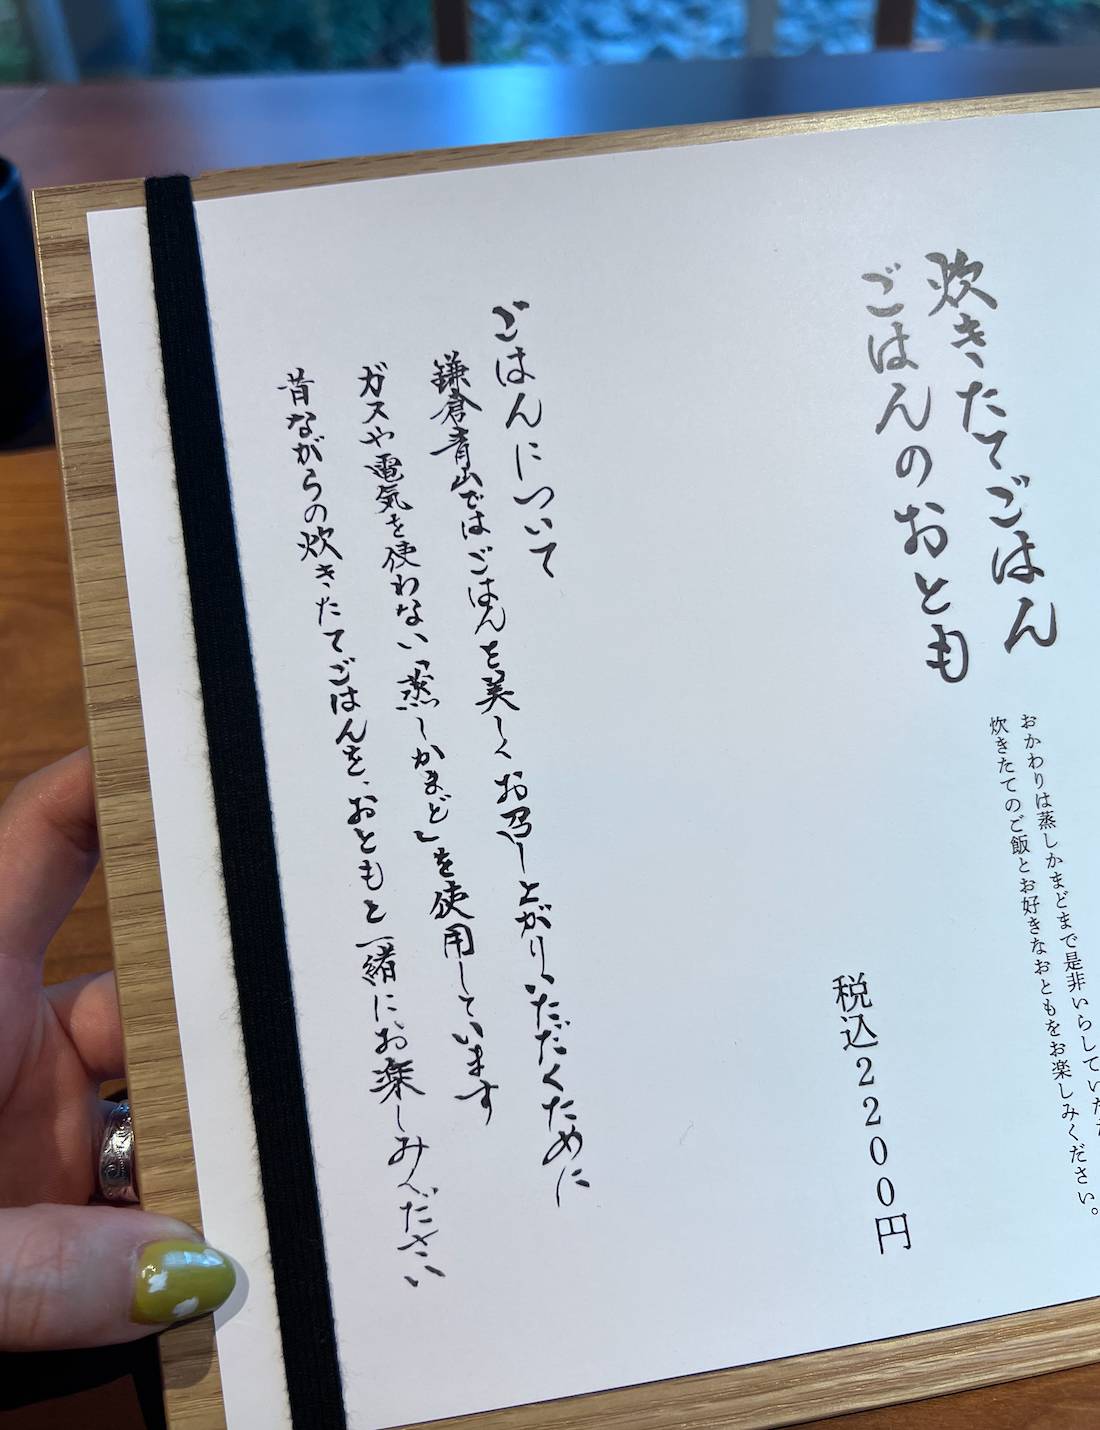 炊きたてごはん
ごはんのおとも
おかわりは蒸しかまどまで是非いらしていただ
炊きたてのご飯とお好きなおともをお楽しみください。
税込2200円
ごはんについて
鎌倉青山ではごはんを美しくお召し上がりいただくために
ガスや電気を使わない「蒸しかまど」を使用しています
昔ながらの炊きたてごはんを、おともと一緒にお楽しみください